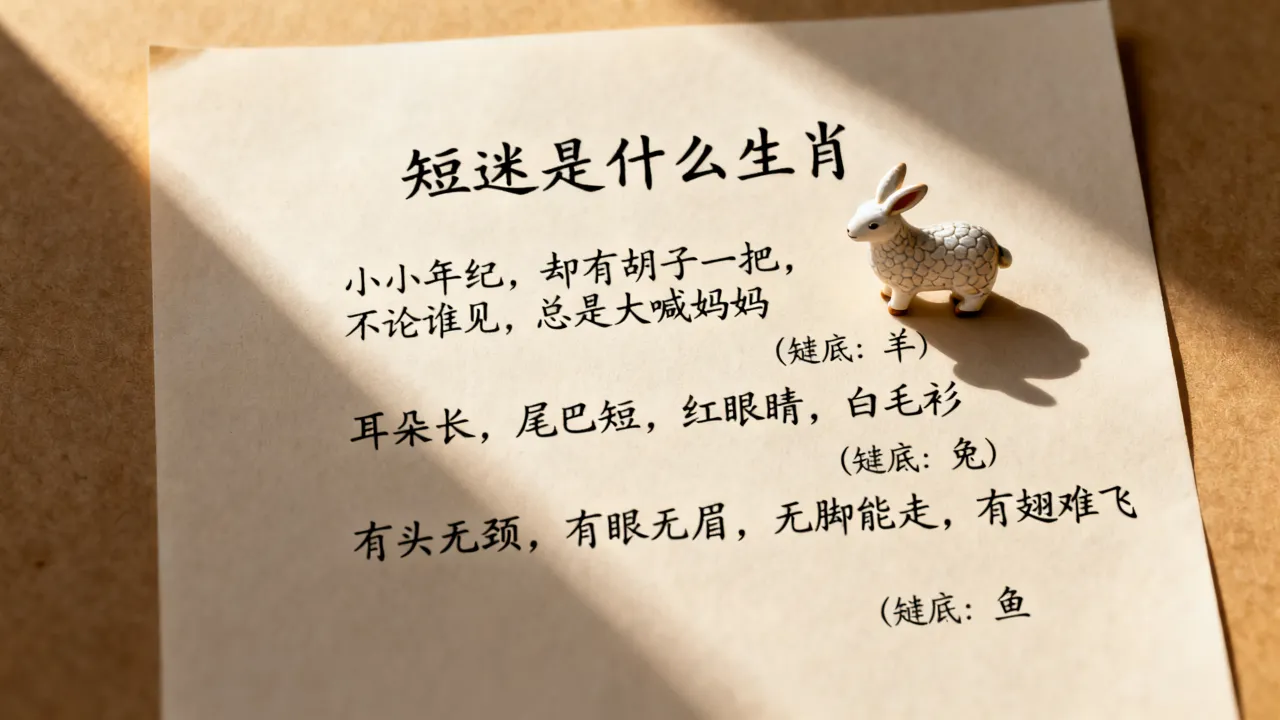 短迷是什么生肖
小小年纪，却有胡子一把，
不论谁见，总是大喊妈妈
(底：羊)
耳朵长，尾巴短，红眼睛，白毛衫
(底：兔)
有头无颈，有眼无眉，无脚能走，有翅难飞
(底：鱼